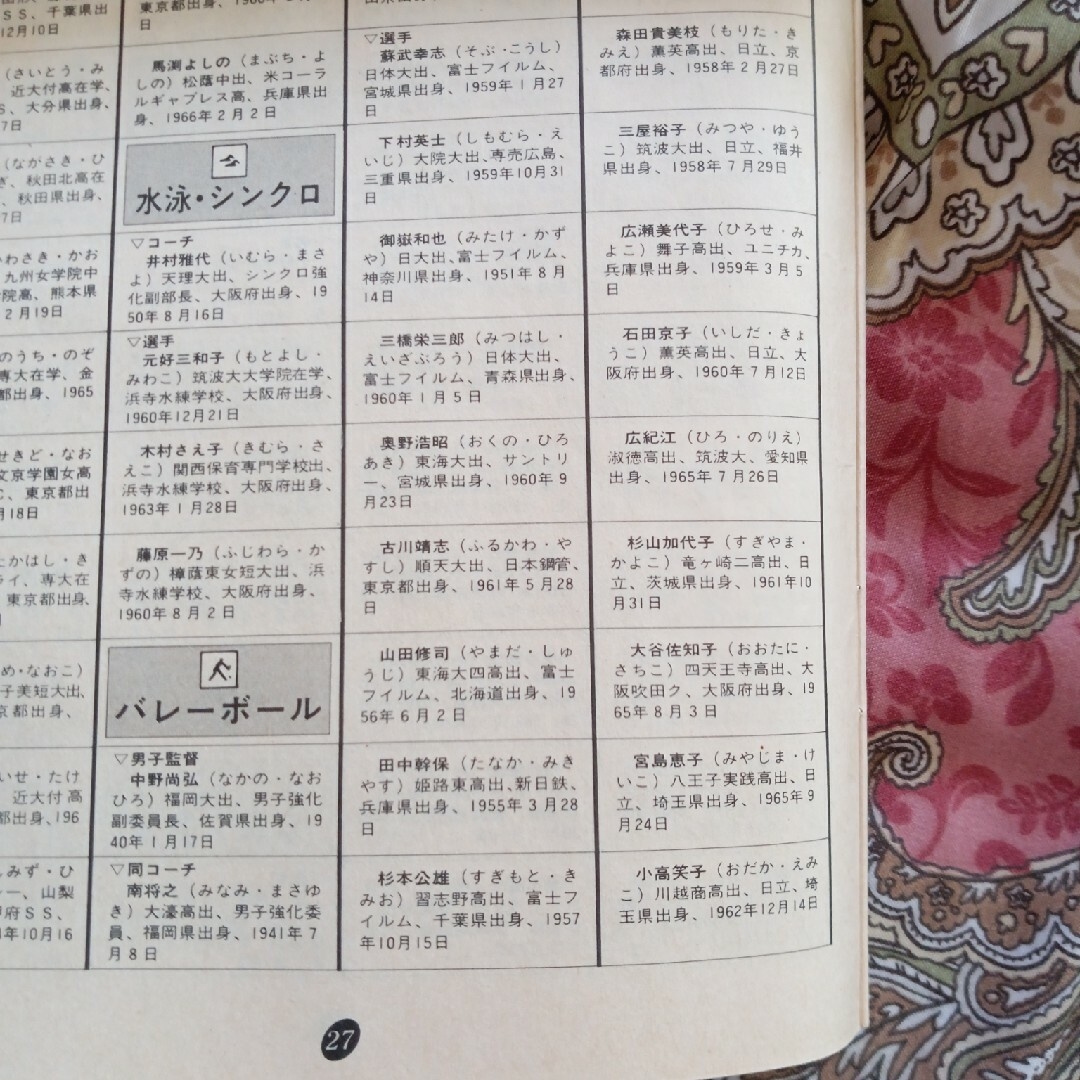 SS、千葉県出
12月10日
(さいとう・み
近大付高在学、
S、大分県出身、
7日
(ながさき・ひ
秋田北高在
秋田県出身、
7日
わさき・かお
九州女学院中
学院高、熊本県
2月19日
のうち・のぞ
専大在学、金
都出身、1965
せきど・なお
文京学園女高
C、東京都出
月18日
たかはし・き
ライ、専大在
東京都出身、
め・なおこ)
子美短大出、
京都出身、
いせ・たけ
近大付高
都出身、196
しみず・ひ
ー、山梨
甲府SS、
年10月16
日
馬淵よしの(まぶち・よ
しの)松蔭中出、米コーラ
ルギャブレス高、兵庫県出
身、1966年2月2日
水泳・シンクロ
▽コーチ
井村雅代(いむら・まさ
よ)天理大出、シンクロ強
化副部長、大阪府出身、19
50年8月16日
▽選手
元好三和子(もとよし・
みわこ)筑波大大学院在学、
浜寺水練学校、大阪府出身、
1960年12月21日
木村さえ子(きむら・さ
えこ)関西保育専門学校出、
浜寺水練学校、大阪府出身、
1963年1月28日
藤原一乃(ふじわら・か
ずの)樟蔭東女短大出、浜
寺水練学校、大阪府出身、
1960年8月2日
バレーボール
▽男子監督
中野尚弘(なかの・なお
ひろ)福岡大出、男子強化
副委員長、佐賀県出身、19
40年1月17日
▽同コーチ
南将之(みなみ・まさゆ
き)大濠高出、男子強化委
員、福岡県出身、1941年7
月8日
▽選手
蘇武幸志(そぶ・こうし)
日体大出、富士フイルム、
宮城県出身、1959年1月27
日
下村英士(しもむら・え
いじ)大院大出、専売広島、
三重県出身、1959年10月31
日
御嶽和也(みたけ・かず
や)日大出、富士フイルム、
神奈川県出身、1951年8月
14日
三橋栄三郎(みつはし・
えいざぶろう)日体大出、
富士フイルム、青森県出身、
1960年1月5日
奥野浩昭(おくの・ひろ
あき)東海大出、サントリ
ー、宮城県出身、1960年9
月23日
古川靖志(ふるかわ・や
すし)順天大出、日本鋼管、
東京都出身、1961年5月28
日
山田修司(やまだ・しゅ
うじ)東海大四高出、富士
フイルム、北海道出身、19
56年6月2日
田中幹保(たなか・みき
やす)姫路東高出、新日鉄、
兵庫県出身、1955年3月28
日
杉本公雄(すぎもと・き
みお)習志野高出、富士フ
イルム、千葉県出身、1957
年10月15日
森田貴美枝(もりた・き
みえ)薫英高出、日立、京
都府出身、1958年2月27日
三屋裕子(みつや・ゆう
こ)筑波大出、日立、福井
県出身、1958年7月29日
広瀬美代子(ひろせ・み
よこ)舞子高出、ユニチカ、
兵庫県出身、1959年3月5
日
石田京子(いしだ・きょ
うこ)薫英高出、日立、大
阪府出身、1960年7月12日
広紀江(ひろ・のりえ)
淑徳高出、筑波大、愛知県
出身、1965年7月26日
杉山加代子(すぎやま・
かよこ)竜ヶ崎二高出、日
立、茨城県出身、1961年10
月31日
大谷佐知子(おおたに・
さちこ)四天王寺高出、大
阪吹田ク、大阪府出身、19
65年8月3日
宮島恵子(みやじま・け
いこ)八王子実践高出、日
立、埼玉県出身、1965年9
月24日
小高笑子(おだか・えみ
こ)川越商高出、日立、埼
玉県出身、1962年12月14日
27